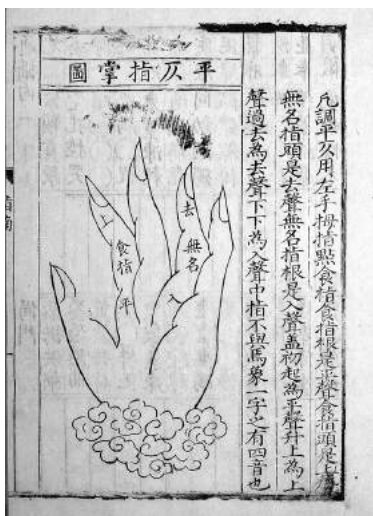 平仄指掌圖
凡調平仄用左手拇指點食指食指根是平聲食指頭是上聲
無名指頭是去聲無名指根是入聲蓋初起為平聲升上為上
聲過去為去聲下下為入聲中指不與焉象一字之有四音也
去
無名
入
上
食指
平